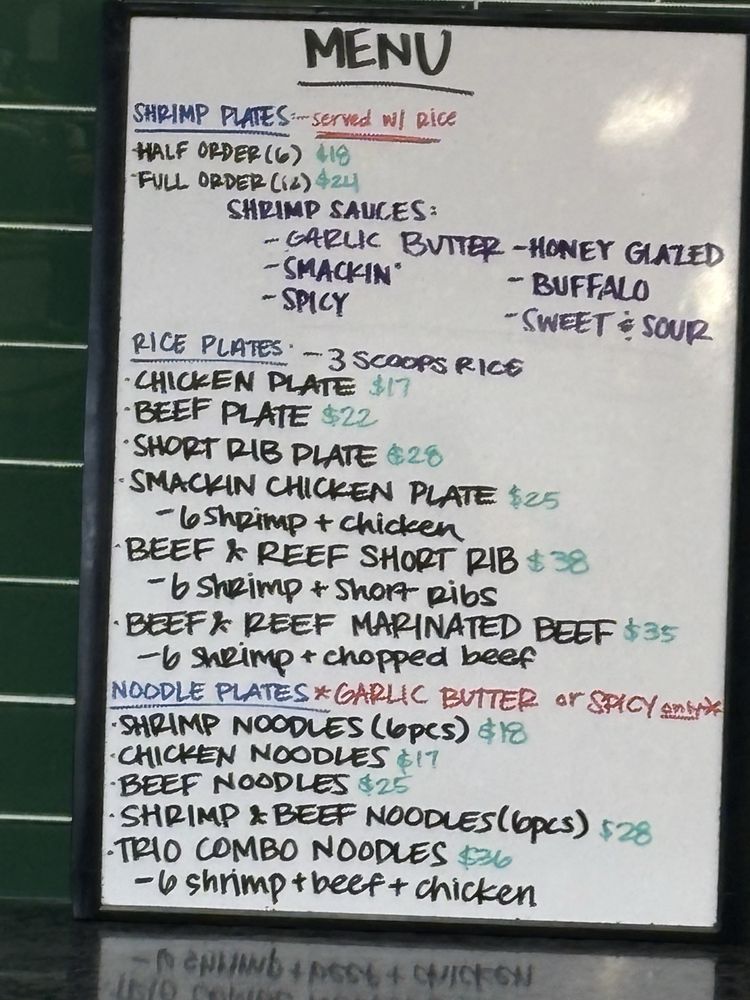 MENU
SHRIMP PLATES:- served w/ RICE
HALF ORDER (6) $18
FULL ORDER (12) $24
SHRIMP SAUCES:
- GARLIC BUTTER - HONEY GLAZED
- SMACKIN' - BUFFALO
- SPICY - SWEET & SOUR
RICE PLATES: - 3 SCOOPS RICE
· CHICKEN PLATE $17
· BEEF PLATE $22
· SHORT RIB PLATE $28
· SMACKIN CHICKEN PLATE $25
- 6 shrimp + chicken
· BEEF & REEF SHORT RIB $38
- 6 shrimp + short ribs
· BEEF & REEF MARINATED BEEF $35
- 6 shrimp + chopped beef
NOODLE PLATES *GARLIC BUTTER or SPICY only*
· SHRIMP NOODLES (6pcs) $18
· CHICKEN NOODLES $17
· BEEF NOODLES $25
· SHRIMP & BEEF NOODLES (6pcs) $28
· TRIO COMBO NOODLES $36
- 6 shrimp + beef + chicken